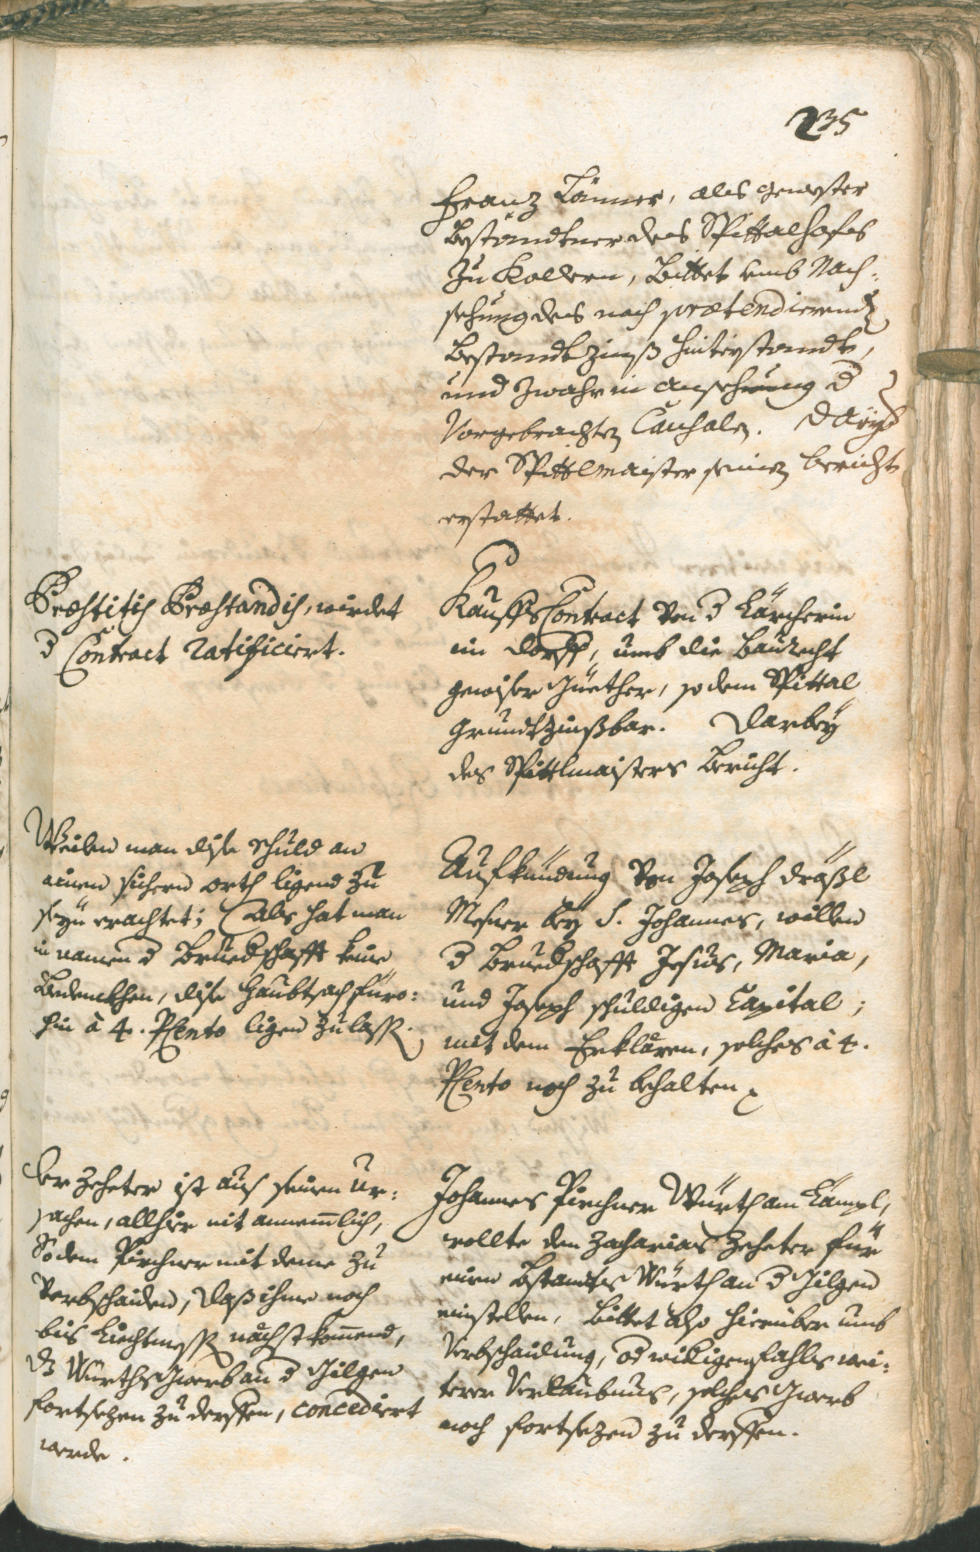 235
Franz Tänner, als gewester
Beständtner des Spittalhofes
Zu Kollern, Bittet umb Nach-
sehung des noch prætendierend
Bestandt Zinß hinterstandt,
und Zwahr in ansehung d
Vorgebrachten Causalen. Darÿb
der Spittlmaister seinen bericht
erstattet.
Præstitis Præstandis, wirdet
d Contract ratificiert.
Kauffs Contract Von d Lärcherin
im Dorff, umb die Baurecht
gewiser Güether, so dem Spittal
Grundtzinßbar. Darbeÿ
des Spittlmaisters Bericht.
Weilen man dise schuld an
einen sichern orth ligend zu
seÿn erachtet; Als hat man
in namen d Bruedschafft keine
Bedenckhen, dise haubtsach füro:
hin à 4. PCento ligen zulassen.
Aufkündung Von Joseph Dräxl
Mesner beÿ S. Johannes, willen
d Bruedschafft Jesus, Maria,
und Joseph schuldigen Capital;
mit dem Erklären, solches à 4.
PCento noch zu behalten
Der Zeheter ist aus seinen Ur:
sachen, allhier nit annemlich,
So dem Pirchner mit deme zu
Verbschaiden, daß ihme noch
bis Liechtmessen nächstkomend,
dz Würths Gwerb an d Gilgen
fortsezen zu derffen, concediert
werde.
Johannes Pirchner Würth am Lämpl,
wollte den Zacharias Zeheter für
einen Bstandts Würth an d Gilgen
einstellen, bittet also hierüber umb
Verbschaidung, od widrigenfahls wei:
terer Verlaubnus, solches Gwerb
noch fortsezen zu derffen.